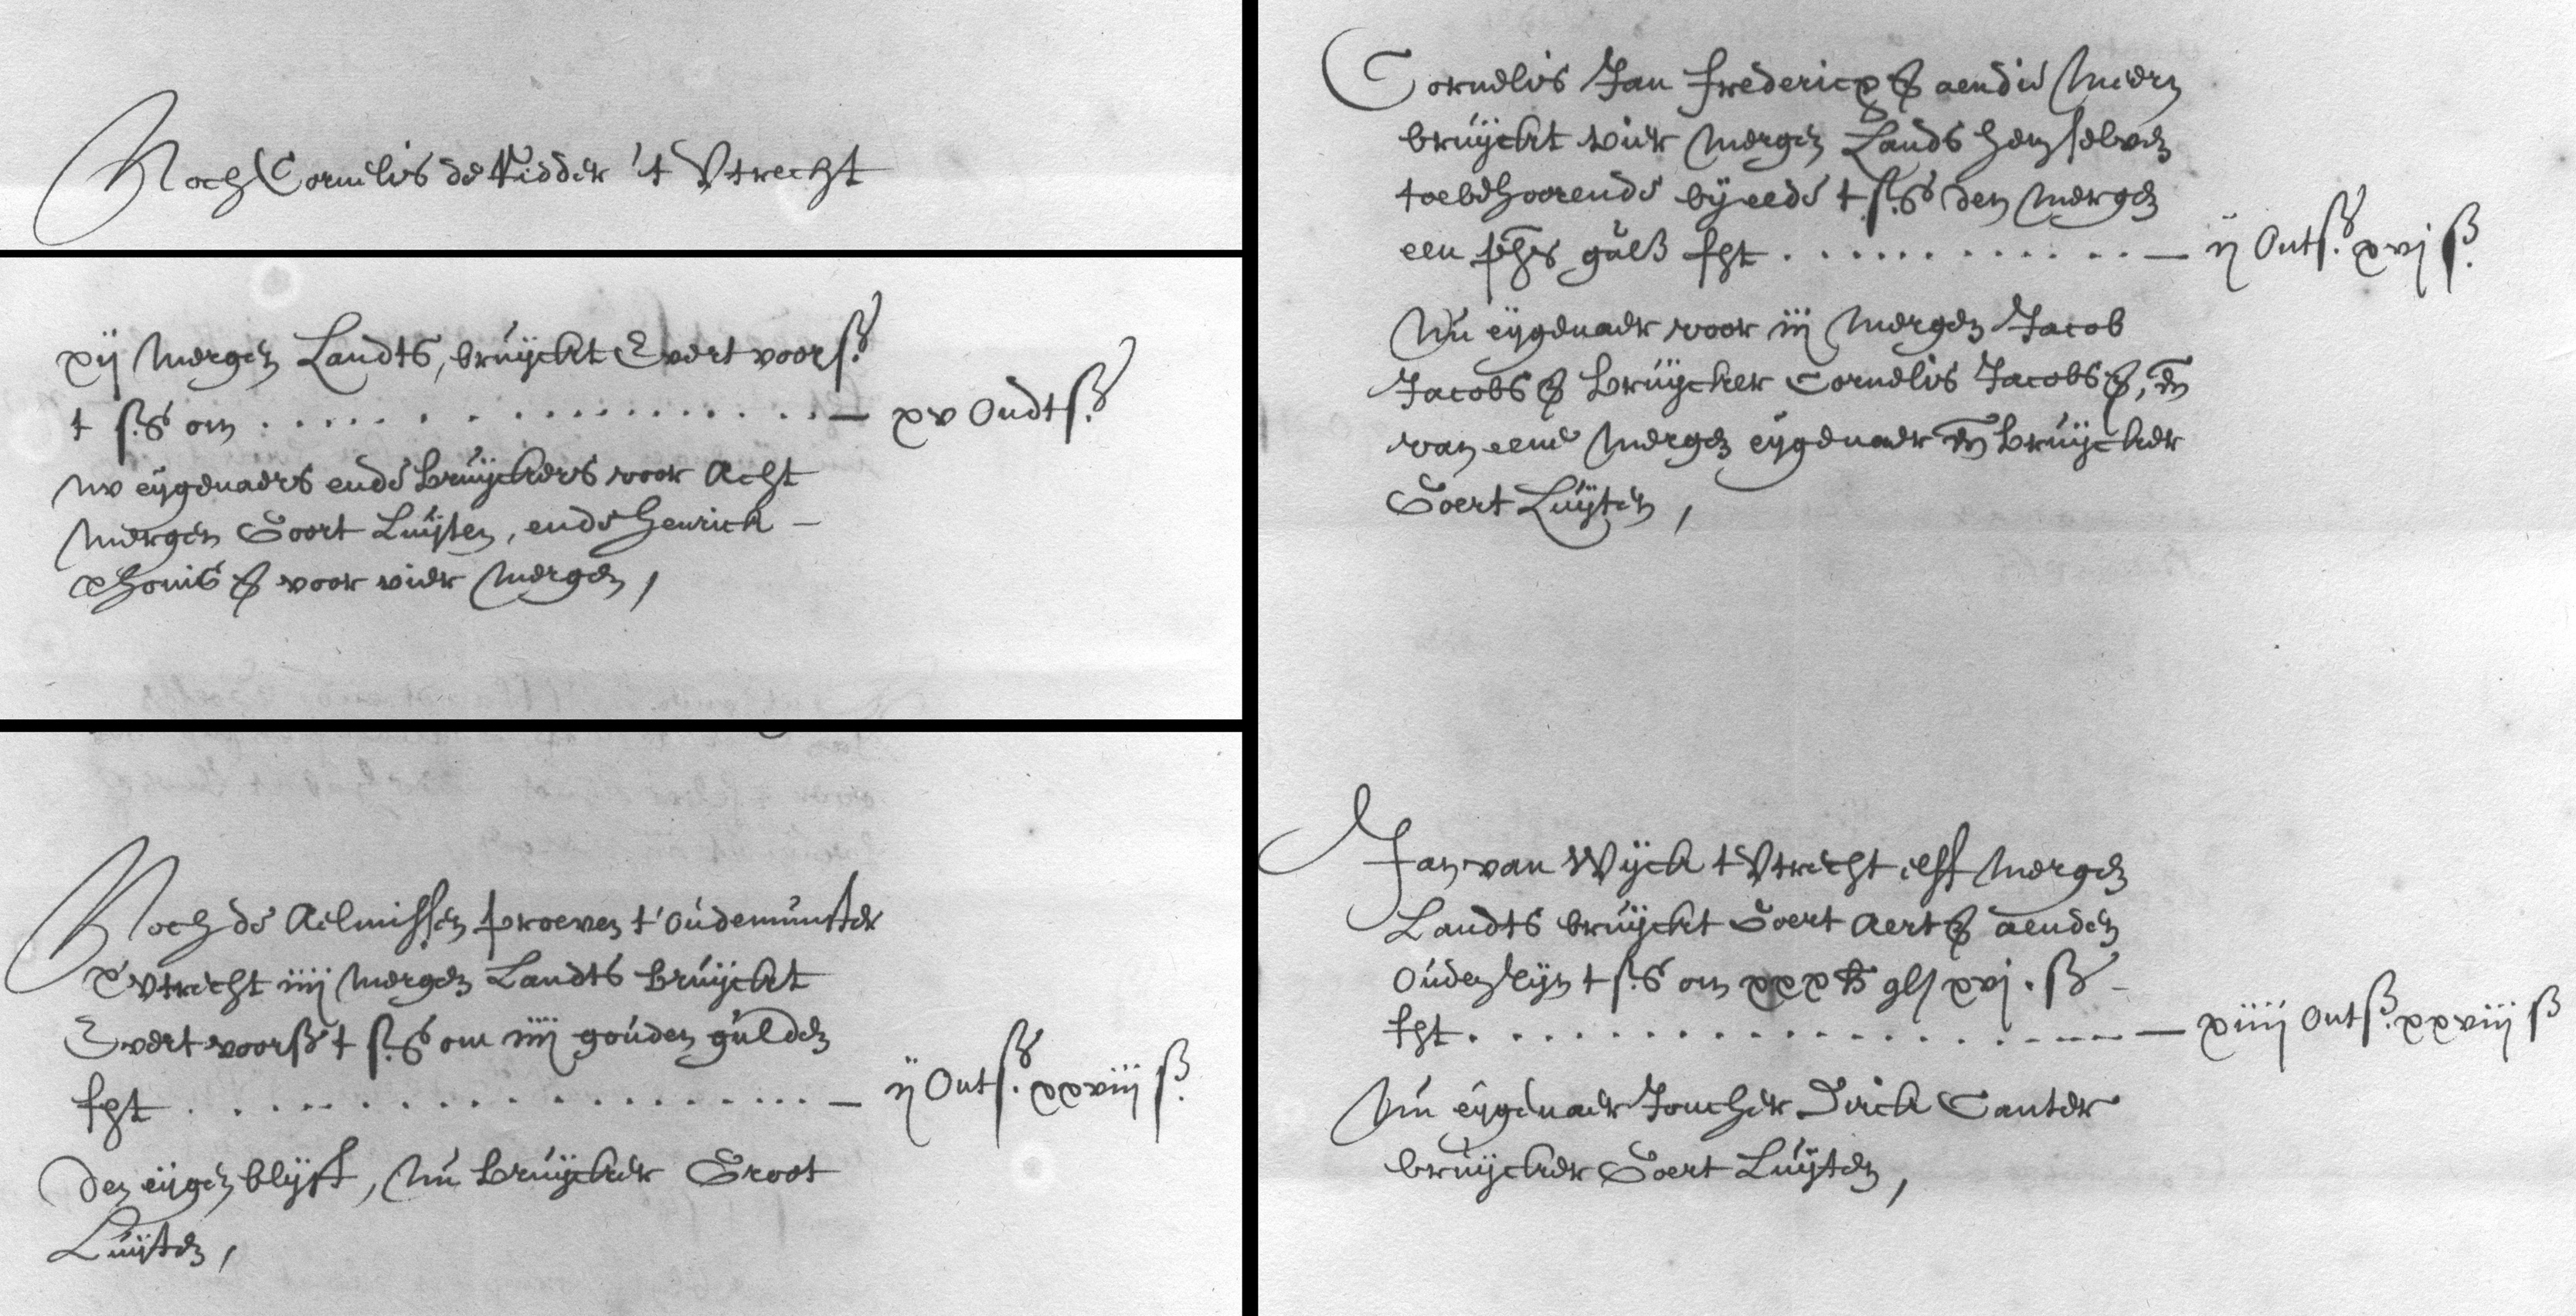 Noch Cornelis de Ridder 't Utrecht
xij mergen Landts, bruijckt Evert voorß.
t ß.s om . . . . . . . . . . — xv Oudtß.
Nu eijgenaers ende bruijckers voor Acht
mergen Goort Luijten, ende Henrick –
Thonisz voor vier mergen,
Noch de Aelmissen proeven t' oudemunster
t' Utrecht iiij mergen Landts bruijckt
Evert voorß t ß.s om iiij gouden gulden
fht . . . . . . . . . . — ij Outß. xxviij ß.
Den eijgen blijft, Nu bruijcker Groot
Luijten,
Cornelis Jan Fredericxz aendie Meern
bruijckt vier mergen Lands hem selven
toebehoorende bij eede t ß.s den mergen
een gulß fht . . . . . . . . . . — ij Outß. xvj ß.
Nu eijgenaer voor iij mergen Jacob
Jacobsz bruijcker Cornelis Jacobsz, en
van eene mergen eijgenaer en bruijcker
Goert Luijten,
Jan van Wijck t Utrecht elff mergen
Landts bruijckt Goert Aertz aenden
Ouden Rijn t ß.s om xxx gl xvj . ß –
fht . . . . . . . . . . — xiiij Outß. xxviij ß
Nu eijgenaer Joncher Dirck Canter
bruijcker Goert Luijten,